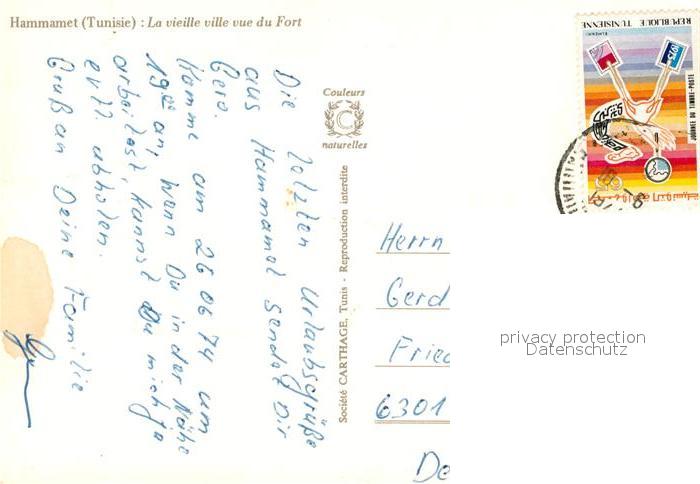 Hammamet (Tunisie) : La vieille ville vue du Fort
Die letzten Urlaubsgrüße
aus Hammamet sendet Dir
Gero.
Komme am 26 06 74 um
19⁰⁰ an, wenn Du in der Nähe
arbeitest, kannst Du mich ja
evtl abholen.
Gruß an Deine Familie
Couleurs
C
naturelles
Société CARTHAGE, Tunis - Reproduction interdite
REPUBLIQUE TUNISIENNE
JOURNEE DU TIMBRE-POSTE
Herrn
Gerd
Fried
6301
privacy protection
Datenschutz